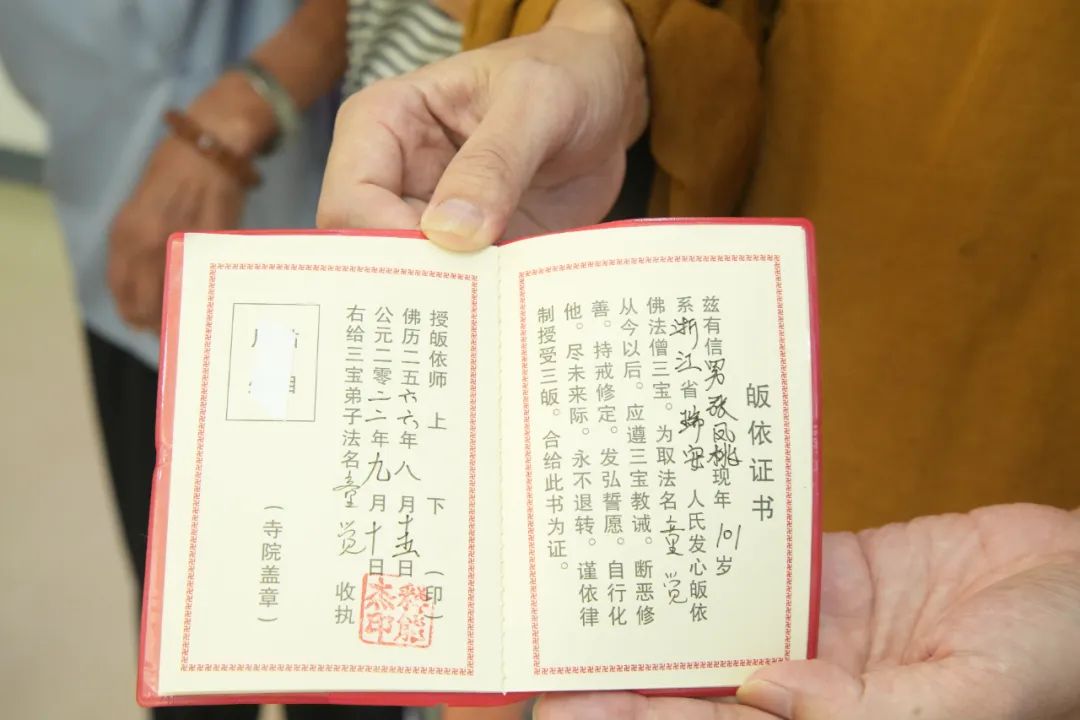 皈依证书
兹有信男张凤桃现年101岁
系浙江省瑞安人氏发心皈依
佛法僧三宝。为取法名童觉
从今以后。应遵三宝教诫。断恶修
善。持戒修定。发弘誓愿。自行化
他。尽未来际。永不退转。谨依律
制授受三皈。合给此书为证。
授皈依师 上 下 (印)
佛历二五六六年八月十五日
公元二零二二年九月十日
右给三宝弟子法名童觉 收执
(寺院盖章)